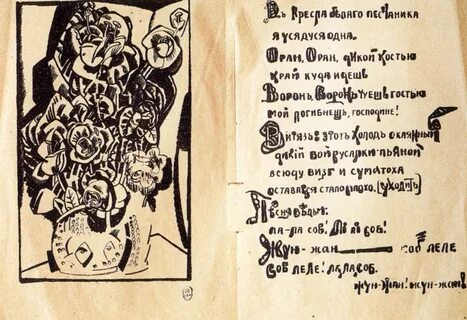 Въ кресла бѣлаго песчаника
я усядуся одна.
Оран, Оран, дикой костью
край куда идешь
Воронъ, Воронъ, чуешь гостью
мой погибнешь, господине!
Витязь: этотъ холодъ окаянный
дикiй вой русалки пьяной
всюду визг и суматоха
оставаться стало плохо. (уходитъ)
Песня ведьм:
ла-ла соб! ли ли соб!
Жун-жан соб леле
соб леле! ла ла соб.
жун-жан! жун-жан!